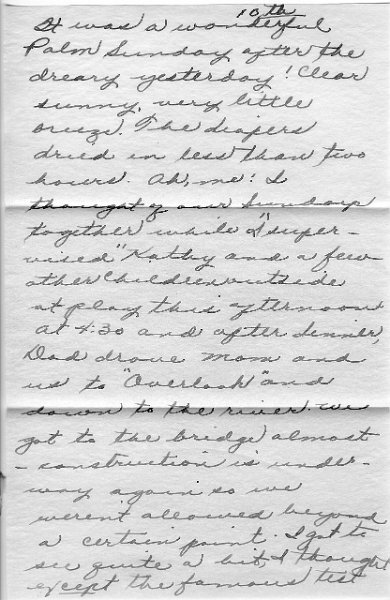 10th
It was a wonderful
Palm Sunday after the
dreary yesterday! Clear
sunny, very little
breeze. The diapers
dried in less than two
hours. Ah, me! I
thought of our Sundays
together while I "super-
vised" Kathy and a few
other children outside
at play this afternoon
At 4:30 and after dinner,
Dad drove Mom and
us to "Overlook" and
down to the river. We
got to the bridge, almost
- construction is under-
way again so we
weren't allowed beyond
a certain point. I got to
see quite a bit, I thought
except the famous test